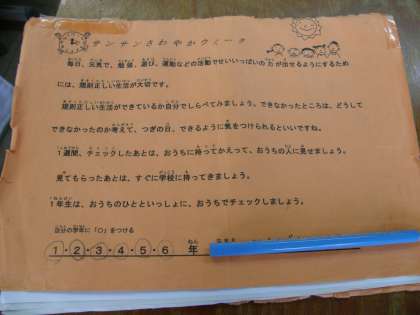 サンサンさわやかウィーク
毎日、元気で、勉強、遊び、運動などの活動でせいいっぱいの力が出せるようにするため
には、規則正しい生活が大切です。
規則正しい生活ができているか自分でしらべてみましょう。できなかったところは、どうして
できなかったのか考えて、つぎの日、できるように気をつけられるといいですね。
1週間、チェックしたあとは、おうちに持ってかえって、おうちの人に見せましょう。
見てもらったあとは、すぐに学校に持ってきましょう。
1年生は、おうちのひとといっしょに、おうちでチェックしましょう。
自分の学年に「○」をつける
1・2・3・4・5・6 年